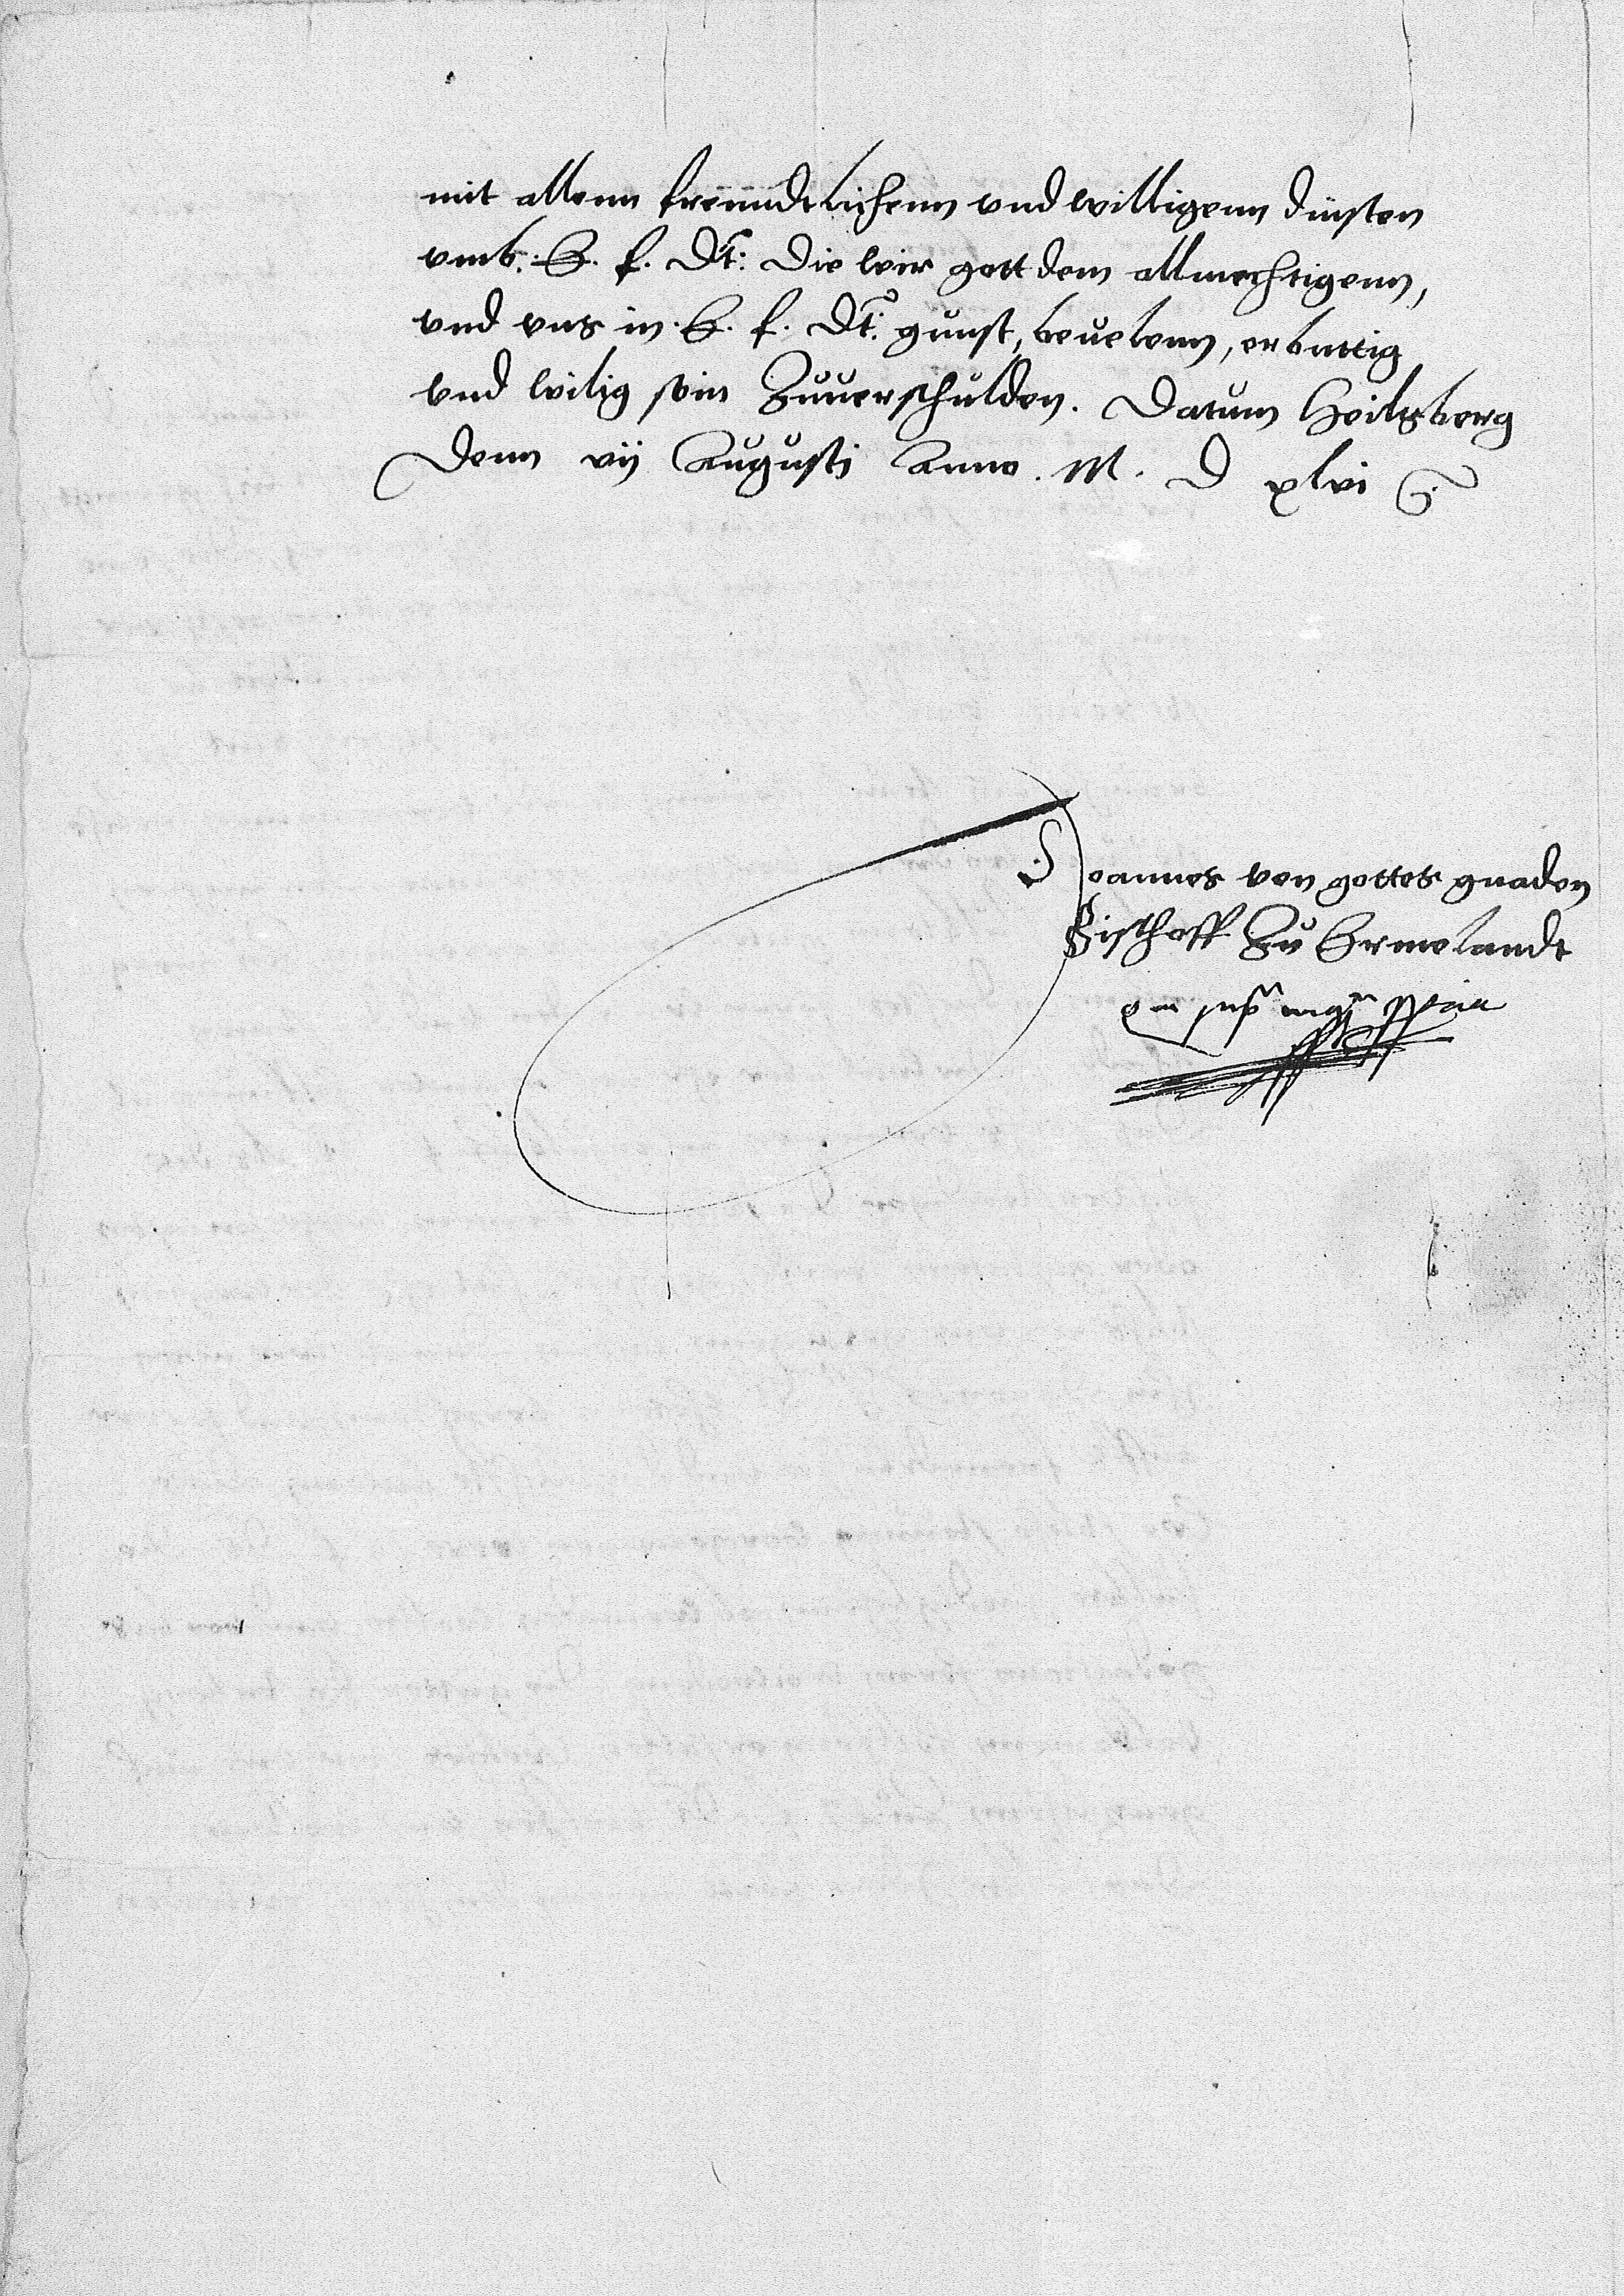 mit allenn freundtlichenn vnd willigenn dinsten
vmb. E. f. Dt: die wir gott dem allmechtigenn,
vnd vns in. E. f. Dt: gunst, beuelenn, erbuttig
vnd wilig sein Zuuerschulden. Datum Heilsberg
denn vij Augusti Anno. M. D xlvi
Joannes von gottes gnaden
Bischoff Zu Ermelandt